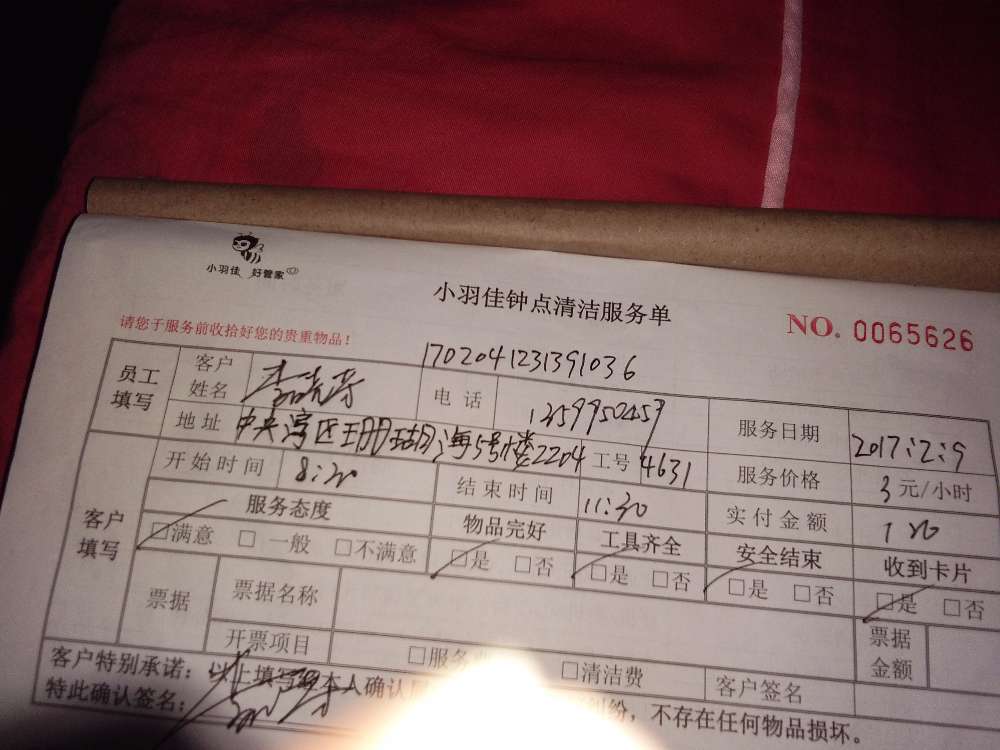 小羽佳 好管家
小羽佳钟点清洁服务单
NO. 0065626
请您于服务前收拾好您的贵重物品!
1702041231391036
员工填写 客户姓名 李晓芳 电话 1359950459 服务日期 2017:2:9
地址 中央湾区珊瑚海5号楼2204 工号 4631 服务价格 3 元/小时
客户填写 开始时间 8:30 结束时间 11:30 实付金额
服务态度 物品完好 工具齐全 安全结束 收到卡片
□满意 □一般 □不满意 □是 □否 □是 □否 □是 □否 □是 □否
票据 票据名称
开票项目 □服务 □清洁费 票据金额
客户签名
客户特别承诺: 以上填写 本人确认 纠纷,不存在任何物品损坏。
特此确认签名: